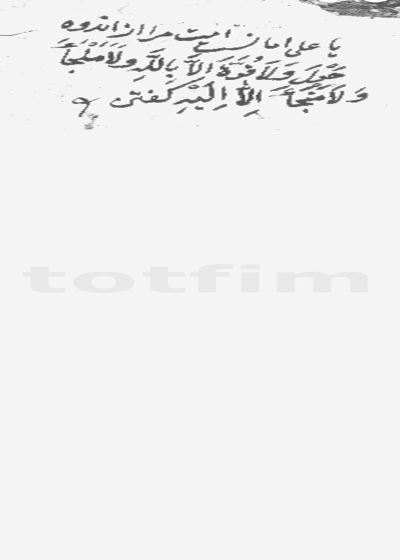 یا علی امانست امیت مرا از اندوه
حَوْلَ وَلَا قُوَّةَ اِلَّا بِاللّٰهِ وَلَا مَلْجَأَ
وَلَا مَنْجَأَ اِلَّا اِلَيْهِ كفتی
totfim